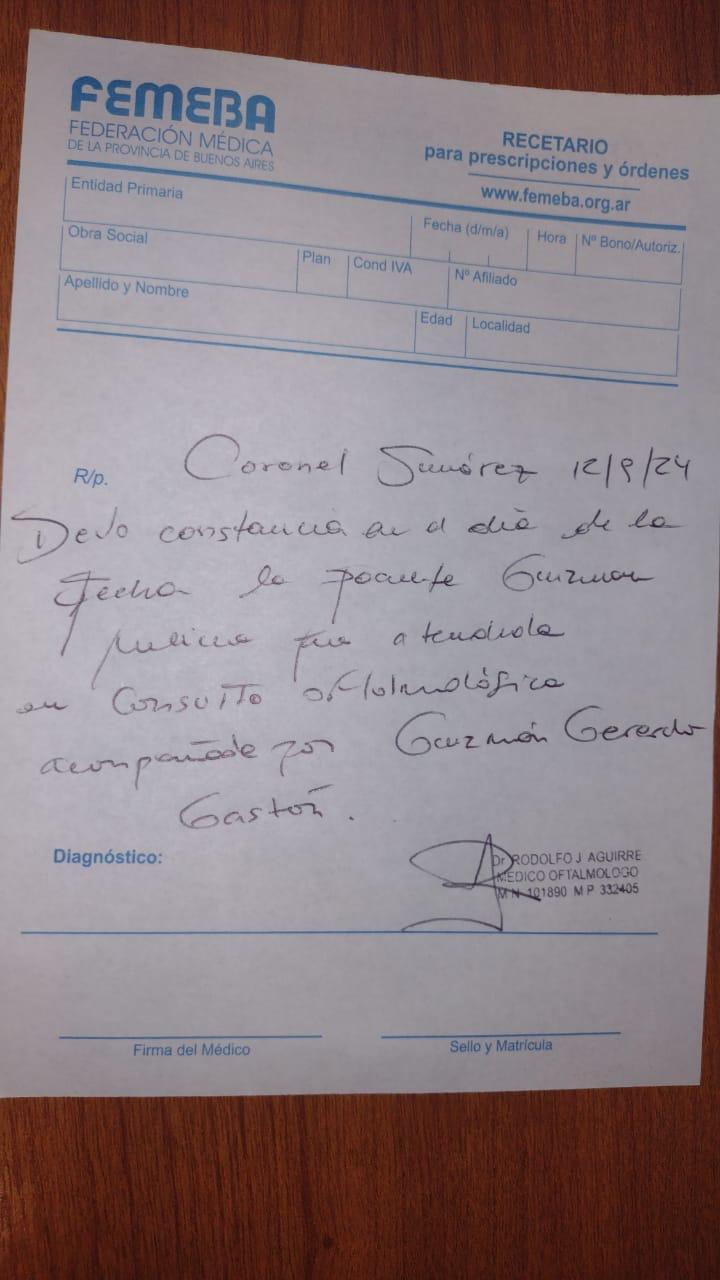 FEMEBA
FEDERACIÓN MÉDICA
DE LA PROVINCIA DE BUENOS AIRES
RECETARIO
para prescripciones y órdenes
www.femeba.org.ar
Entidad Primaria
Fecha (d/m/a)
Hora
Nº Bono/Autoriz.
Obra Social
Plan
Cond IVA
Nº Afiliado
Apellido y Nombre
Edad
Localidad
R/p.
Coronel Suárez 12/9/24
constancia en el día de la
fecha la paciente Guzman
fue atendida
en Consulta oftalmológica
acompañada por Guzmán Gerardo
Gastón.
Diagnóstico:
Dr. RODOLFO J AGUIRRE
MEDICO OFTALMOLOGO
M N 101890 M P 332405
Firma del Médico
Sello y Matrícula